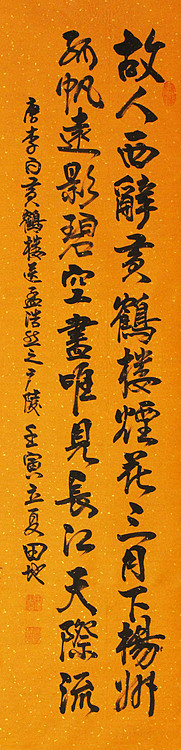 故人西辭黄鶴樓煙花三月下楊州
孤帆遠影碧空盡唯見長江天際流
唐李白黄鶴樓送孟浩然之廣陵 壬寅立夏 田地